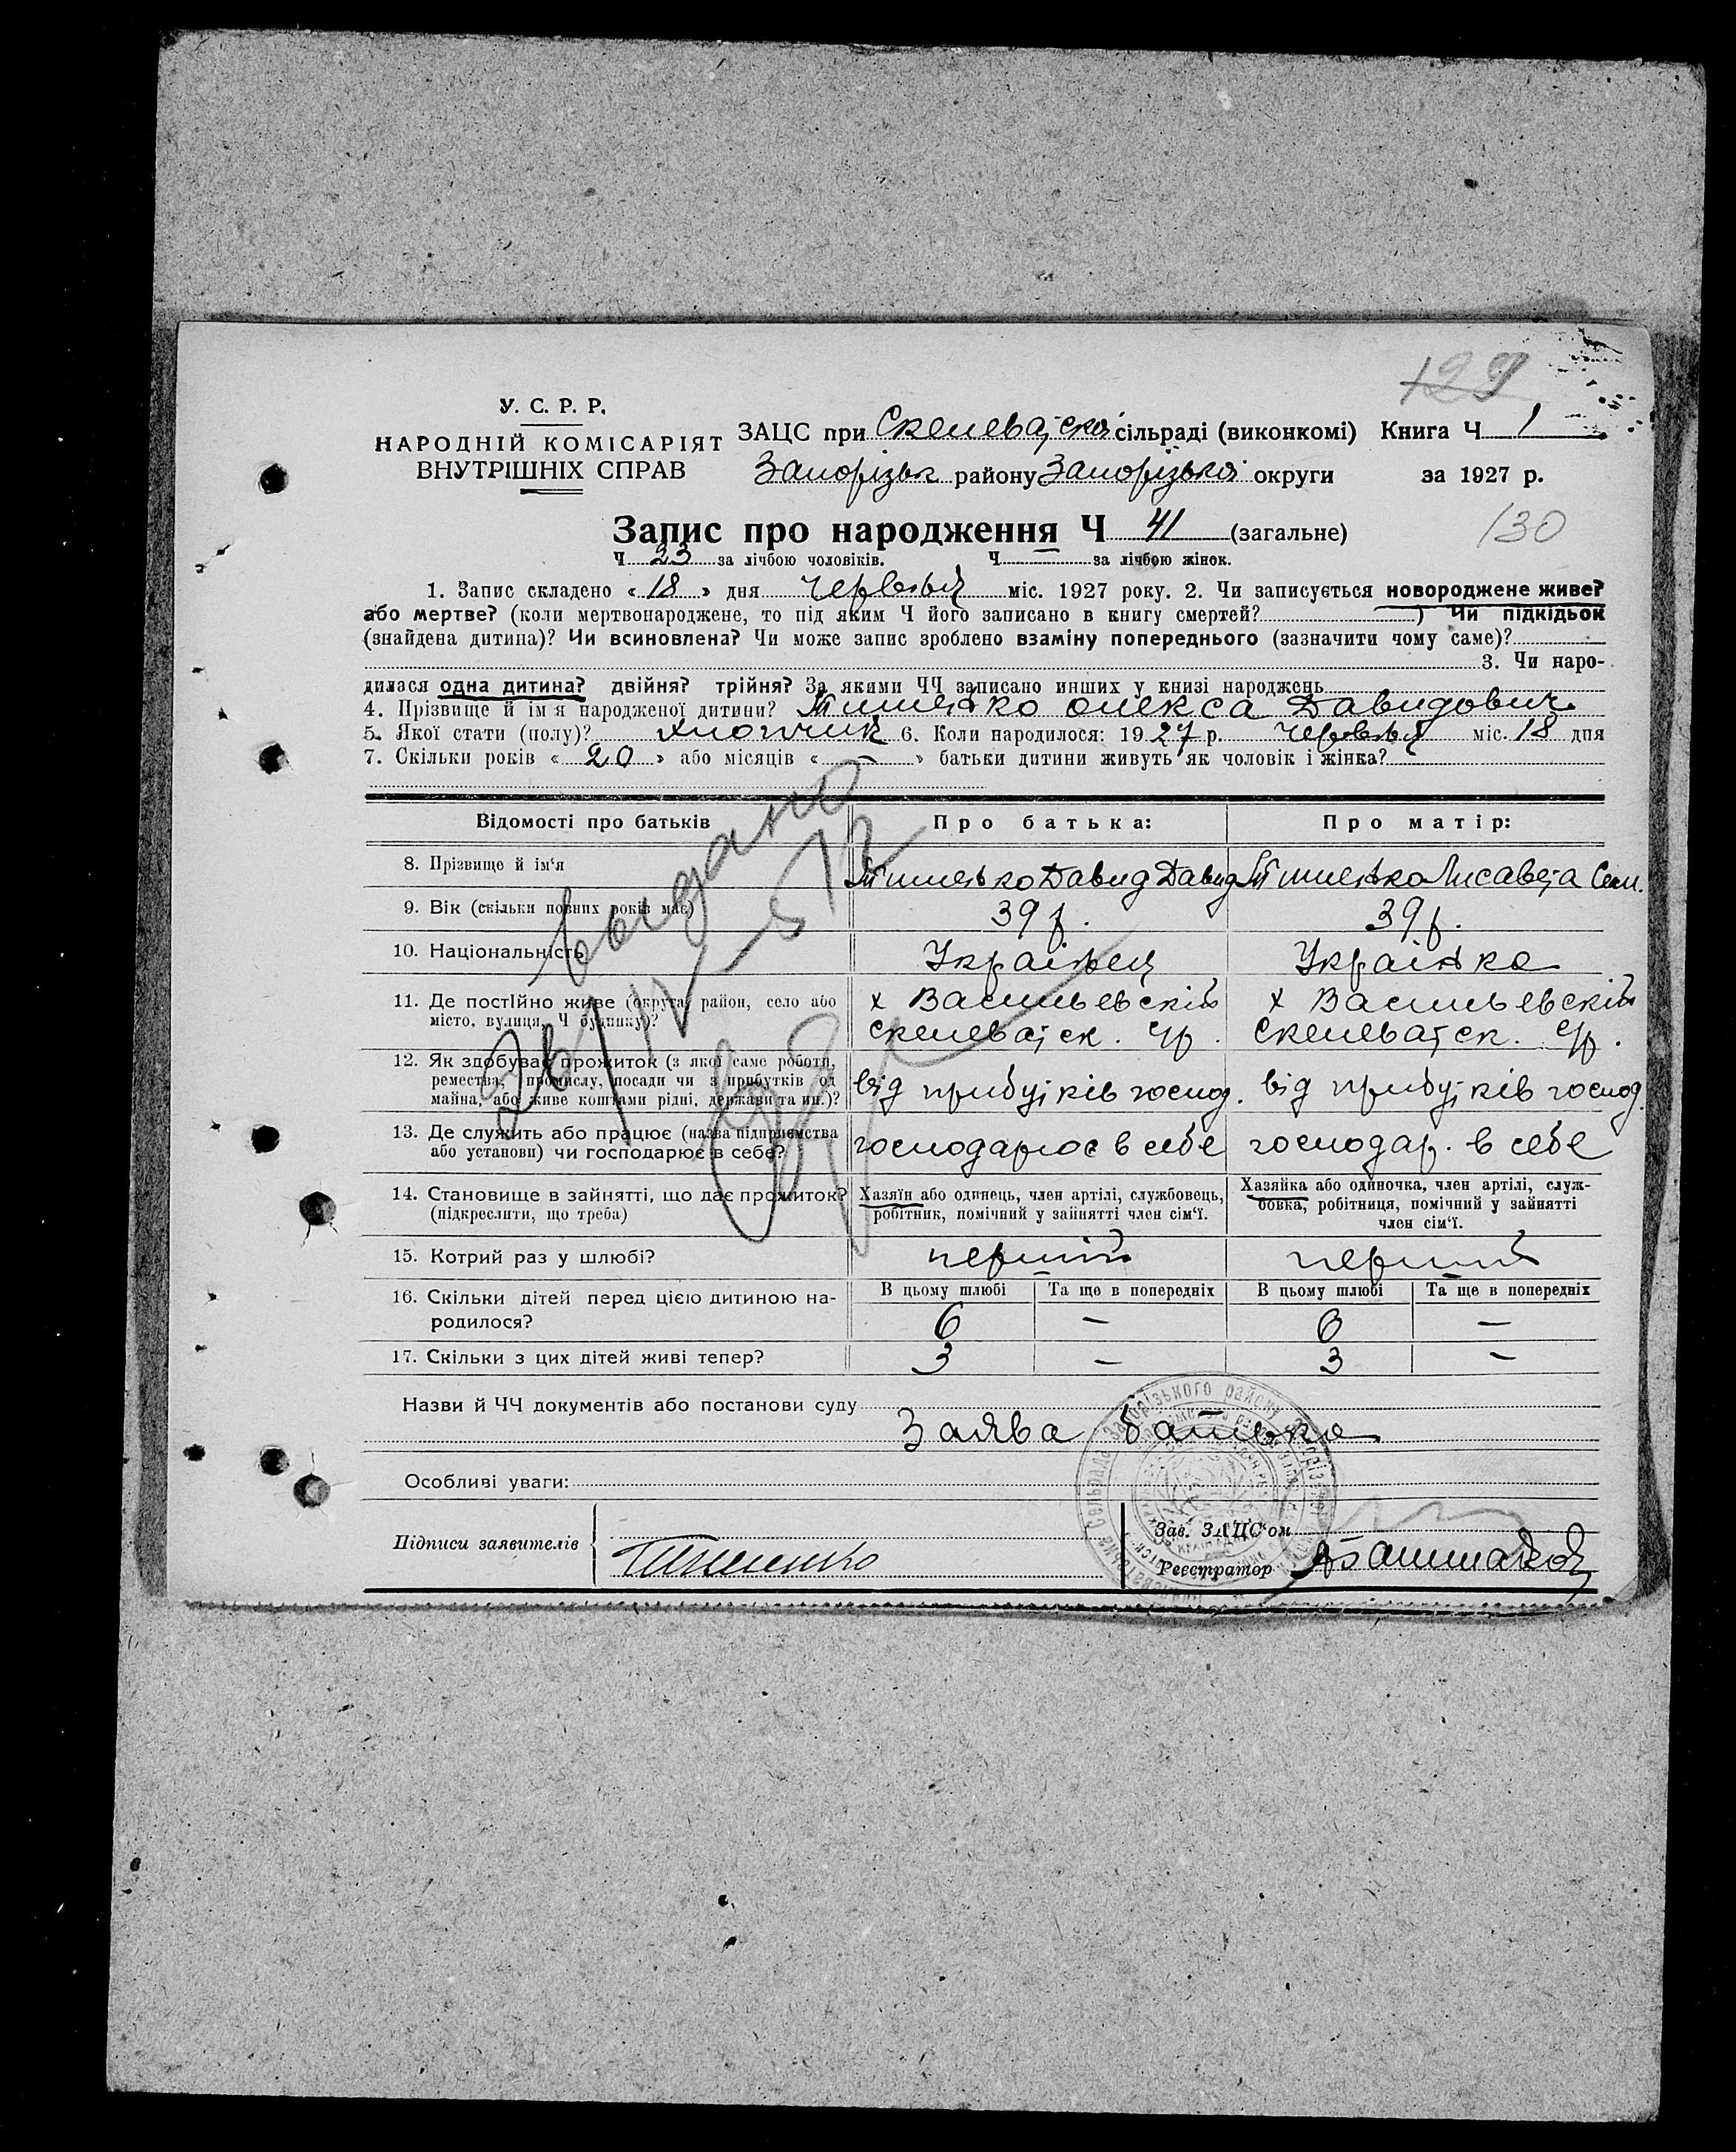 129
У. С. Р. Р.
НАРОДНІЙ КОМІСАРІЯТ
ВНУТРІШНІХ СПРАВ
ЗАЦС при Скелеватской сільраді (виконкомі) Книга Ч 1
Запорізьк району Запорізької округи за 1927 р.
130
Запис про народження Ч 41 (загальне)
Ч 23 за лічбою чоловіків. Ч за лічбою жінок.
1. Запис складено « 18 » дня червня міс. 1927 року. 2. Чи записується новороджене живе?
або мертве? (коли мертвонароджене, то під яким Ч його записано в книгу смертей? ) Чи підкідьок
(знайдена дитина)? Чи всиновлена? Чи може запис зроблено взаміну попереднього (зазначити чому саме)?
3. Чи наро-
дилася одна дитина? двійня? трійня? За якими ЧЧ записано инших у книзі народжень
4. Прізвище й ім'я народженої дитини? Тишенко Олекса Давидович
5. Якої стати (полу)? хлопчик 6. Коли народилося: 1927 р. червня міс. 18 дня
7. Скільки років « 20 » або місяців « — » батьки дитини живуть як чоловік і жінка?
Відомості про батьків Про батька: Про матір:
8. Прізвище й ім'я Тишенко Давид Давид Тишенко Лисавета Сем.
9. Вік (скільки повних років має) 39 р. 39 р.
10. Національність Українец Українка
11. Де постійно живе (округа, район, село або х Васильевскій х Васильевскій
місто, вулиця, Ч будинку)? Скелеватск. Ср. Скелеватск. Ср.
12. Як здобуває прожиток (з якої саме роботи,
ремества, промислу, посади чи з прибутків од від прибутків господ. від прибутків господ.
майна, або живе коштами рідні, держави та ин.)?
13. Де служить або працює (назва підприємства господарює в себе господар. в себе
або установи) чи господарює в себе?
14. Становище в зайнятті, що дає прожиток? Хазяїн або одинець, член артілі, службовець, Хазяйка або одиночка, член артілі, служ-
(підкреслити, що треба) робітник, помічний у зайнятті член сім'ї. бовка, робітниця, помічний у зайнятті
член сім'ї.
15. Котрий раз у шлюбі? перший перший
В цьому шлюбі Та ще в попередніх В цьому шлюбі Та ще в попередніх
16. Скільки дітей перед цією дитиною на-
родилося? 6 — 6 —
17. Скільки з цих дітей живі тепер? 3 — 3 —
Назви й ЧЧ документів або постанови суду
Заява батька
Особливі уваги:
Підписи заявителів Тишенко
Зав. ЗАЦС'ом
Реєстратор
выдано